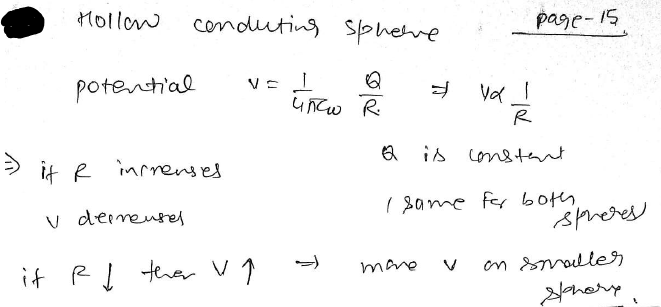 Hollow conducting sphere page-15
potential V = 1/4πε₀ Q/R. ⇒ V∝ 1/R
⇒ if R increases Q is constant
V decreases / same for both spheres
if R ↓ then V ↑ ⇒ more V on smaller sphere.